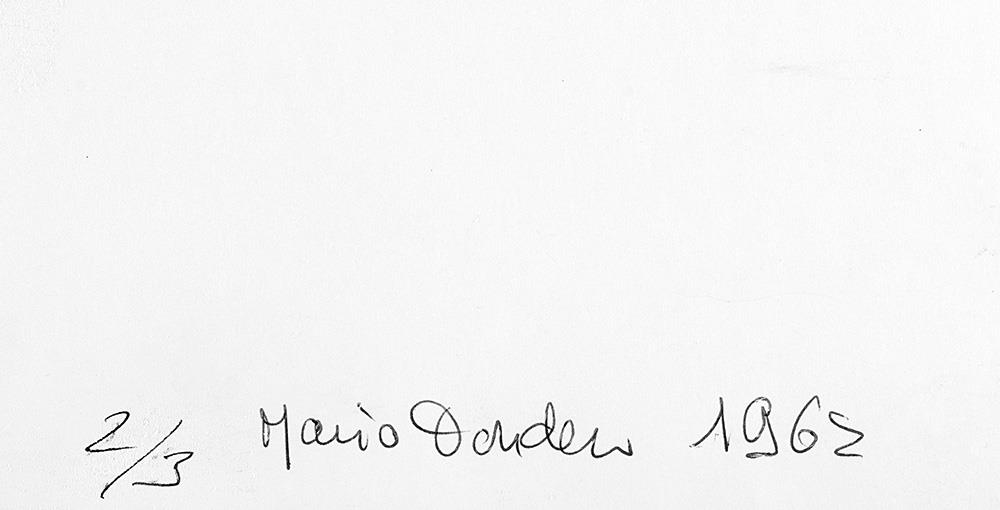 2/3 Mario Dondero 1962